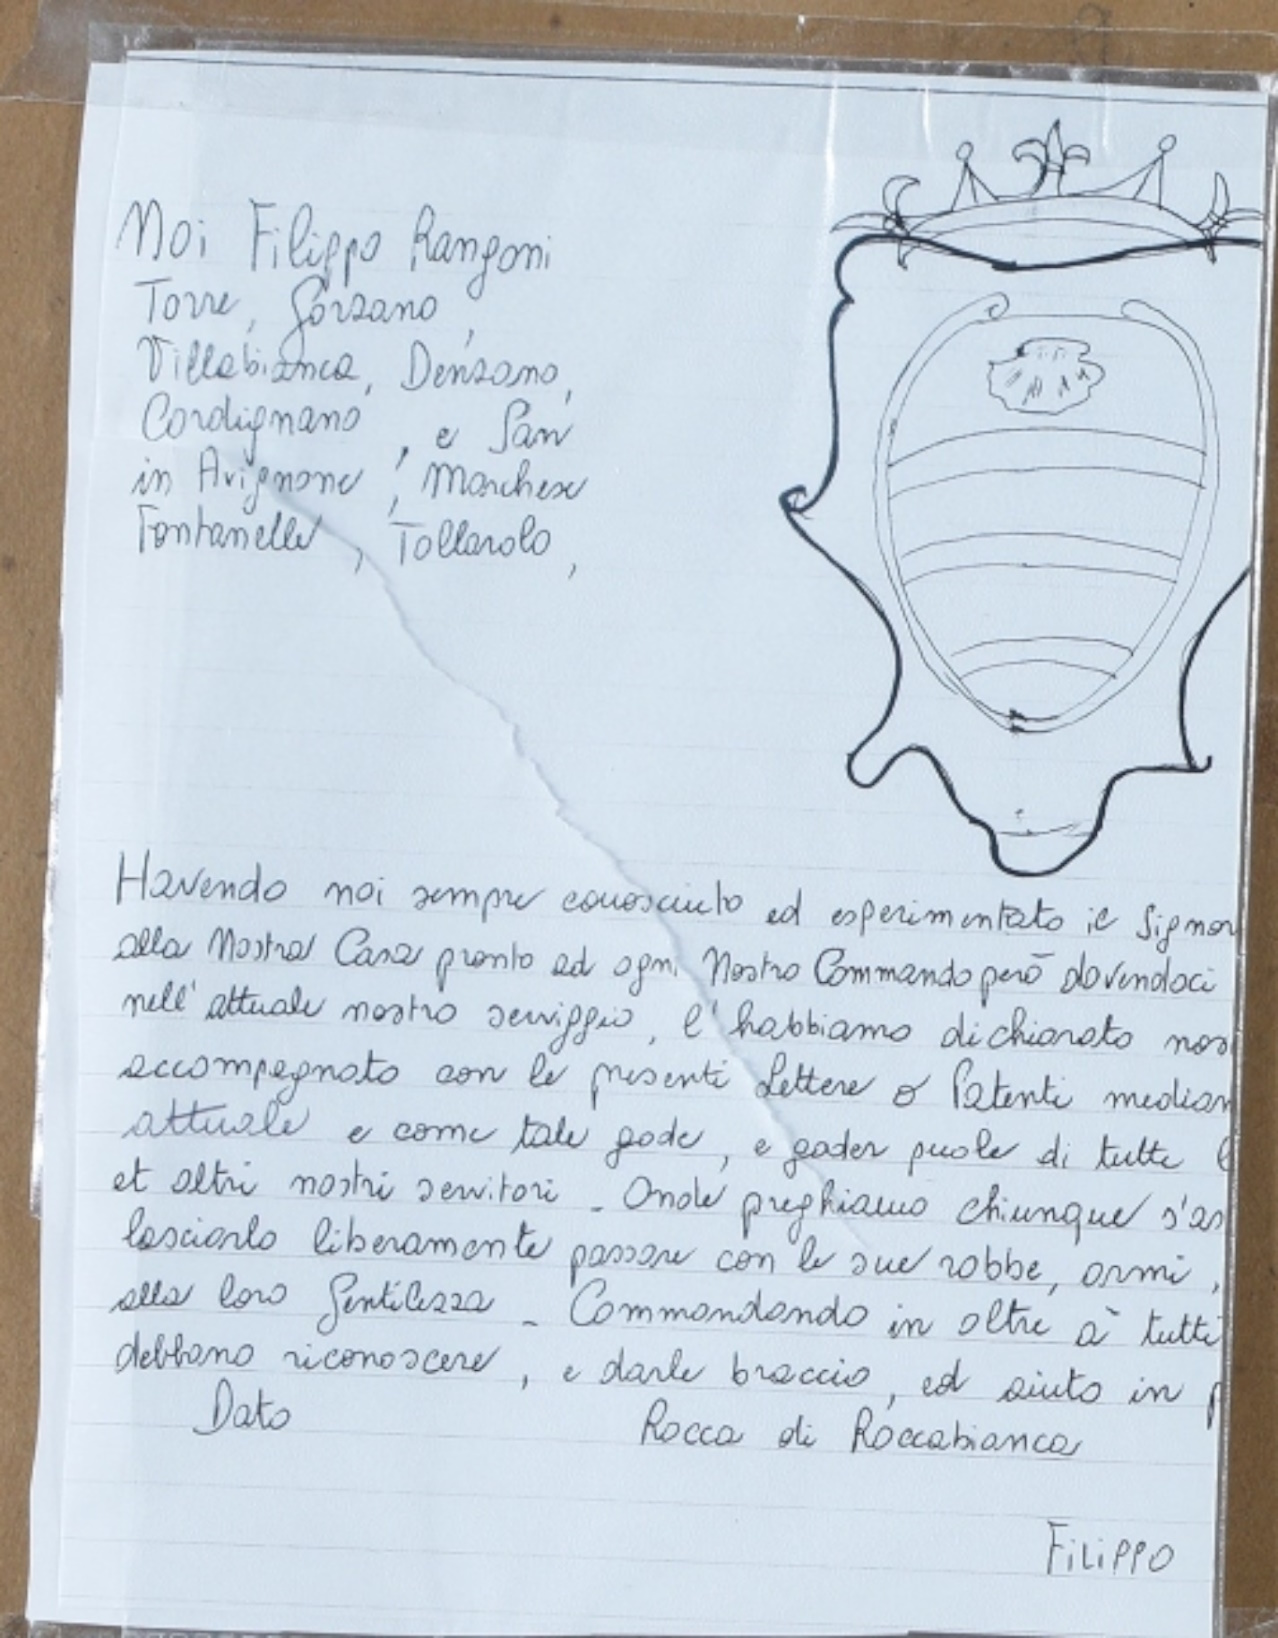 Noi Filippo Rangoni
Torre, Gorzano,
Villabianca, Denzano,
Cordignano, e San
in Avignone, Marchese
Fontanelle, Tollarolo,
Havendo noi sempre conosciuto ed esperimentato il Signor
alla Nostra Casa pronto ad ogni Nostro Commando però dovendoci
nell'attuale nostro serviggio, l'habbiamo dichiarato nos
accompagnato con le presenti Lettere o Patenti median
attuale e come tale gode, e goder puole di tutte l
et altri nostri servitori. Onde preghiamo chiunque s'as
lasciarlo liberamente passare con le sue robbe, armi,
alla loro Gentilezza. Commandando in oltre à tutti
debbano riconoscere, e darle braccio, ed aiuto in p
Dato Rocca di Roccabianca
FILIPPO